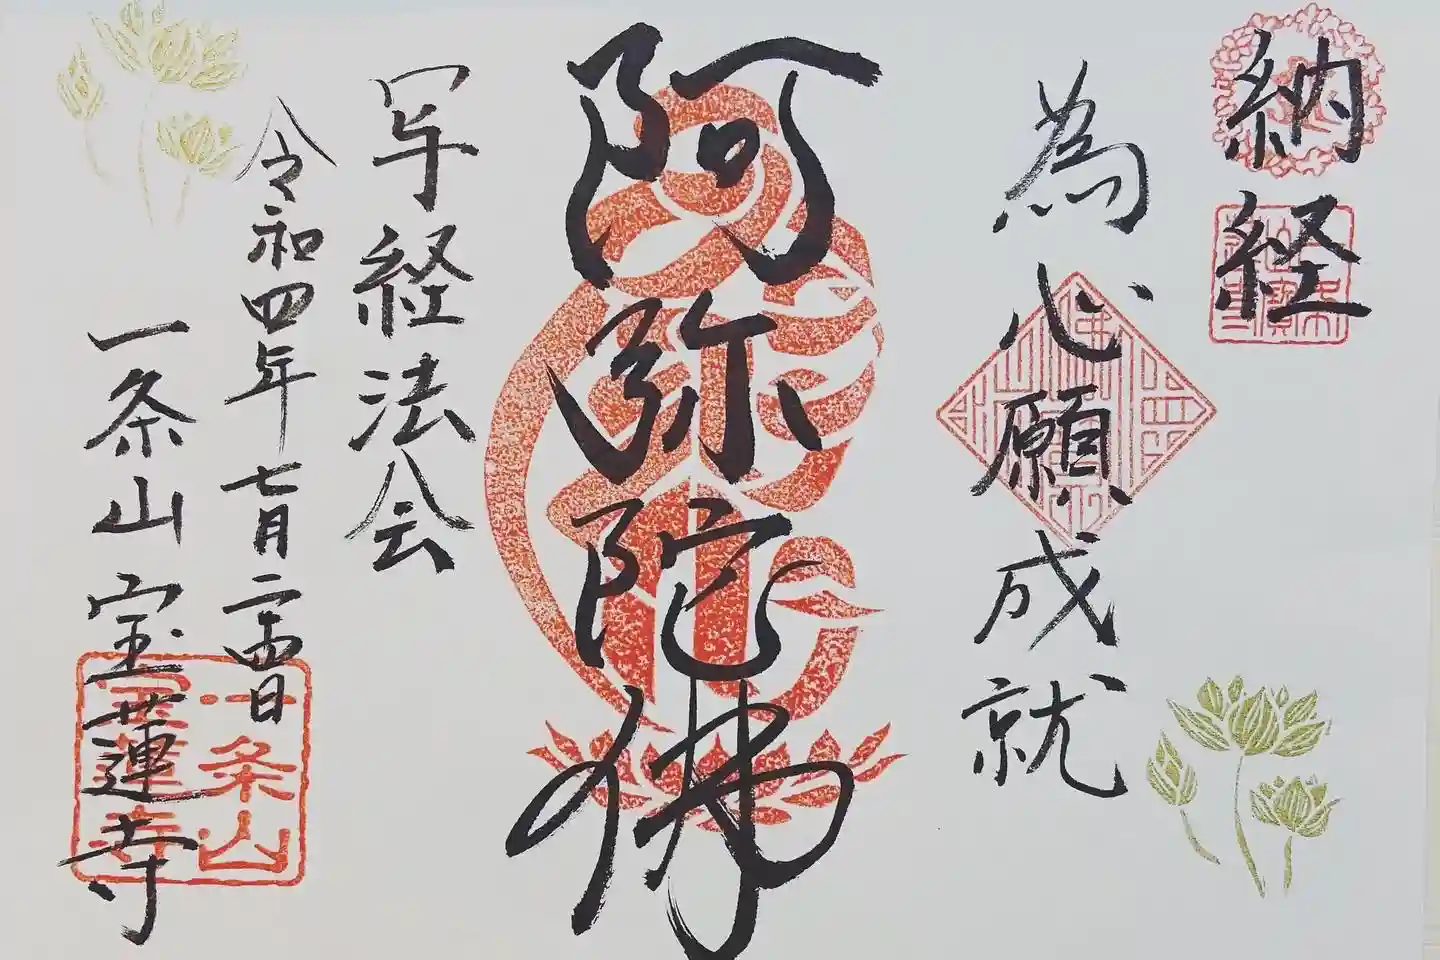 納経
為心願成就
阿弥陀佛
写経法会
令和四年七月二十四日
一条山宝蓮寺
一条山